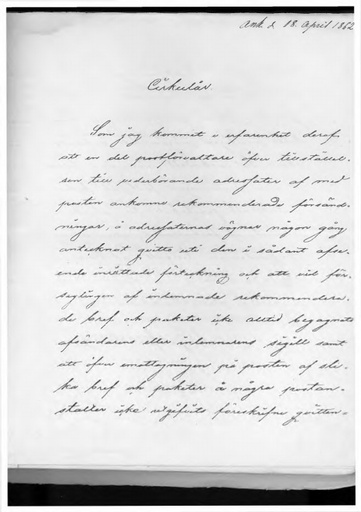 Ank. d. 18. April 1862
Cirkulär.
Som jag kommit i erfarenhet deraf
att en del postförvaltare öfver tillställel-
sen till vederbörande adressater af med
posten ankomne rekommenderade försänd-
ningar, i adressaternas vägnar någon gång
antecknat qvitto uti den i sådant afse-
ende inrättade förteckning och att vid för-
seglingen af inlemnade rekommendera-
de bref och paketer icke alltid begagnats
afsändarens eller inlemnarens sigill samt
att öfver emottagningen på posten af sli-
ka bref och paketer å några postan-
stalter icke utgifvits föreskrifne qvitten-